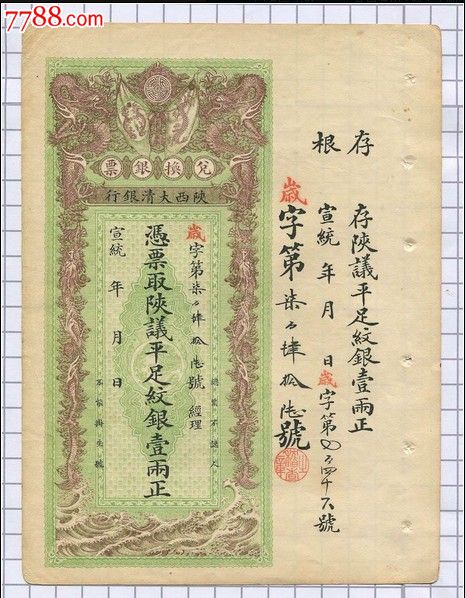 7788.com
存根
存陝議平足紋銀壹兩正
宣統 年 月 日 歲字第 百四十六號
歲字第柒百肆拾陸號
兌換銀票
陝西大清銀行
歲字第柒百肆拾陸號 經理
憑票取陝議平足紋銀壹兩正
宣統 年 月 日
認票不認人